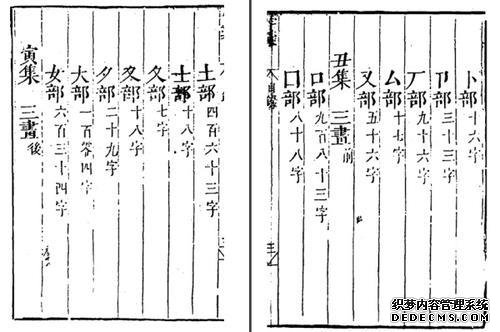 卜部十六字
卩部三十三字
厂部九十六字
厶部十七字
又部五十六字
丑集 三畫前
口部九百八十三字
囗部八十八字
土部四百六十三字
士部十八字
夂部七字
夊部十八字
夕部二十九字
大部一百零四字
女部六百三十四字
寅集 三畫後
织梦内容管理系统
DEDECMS.COM